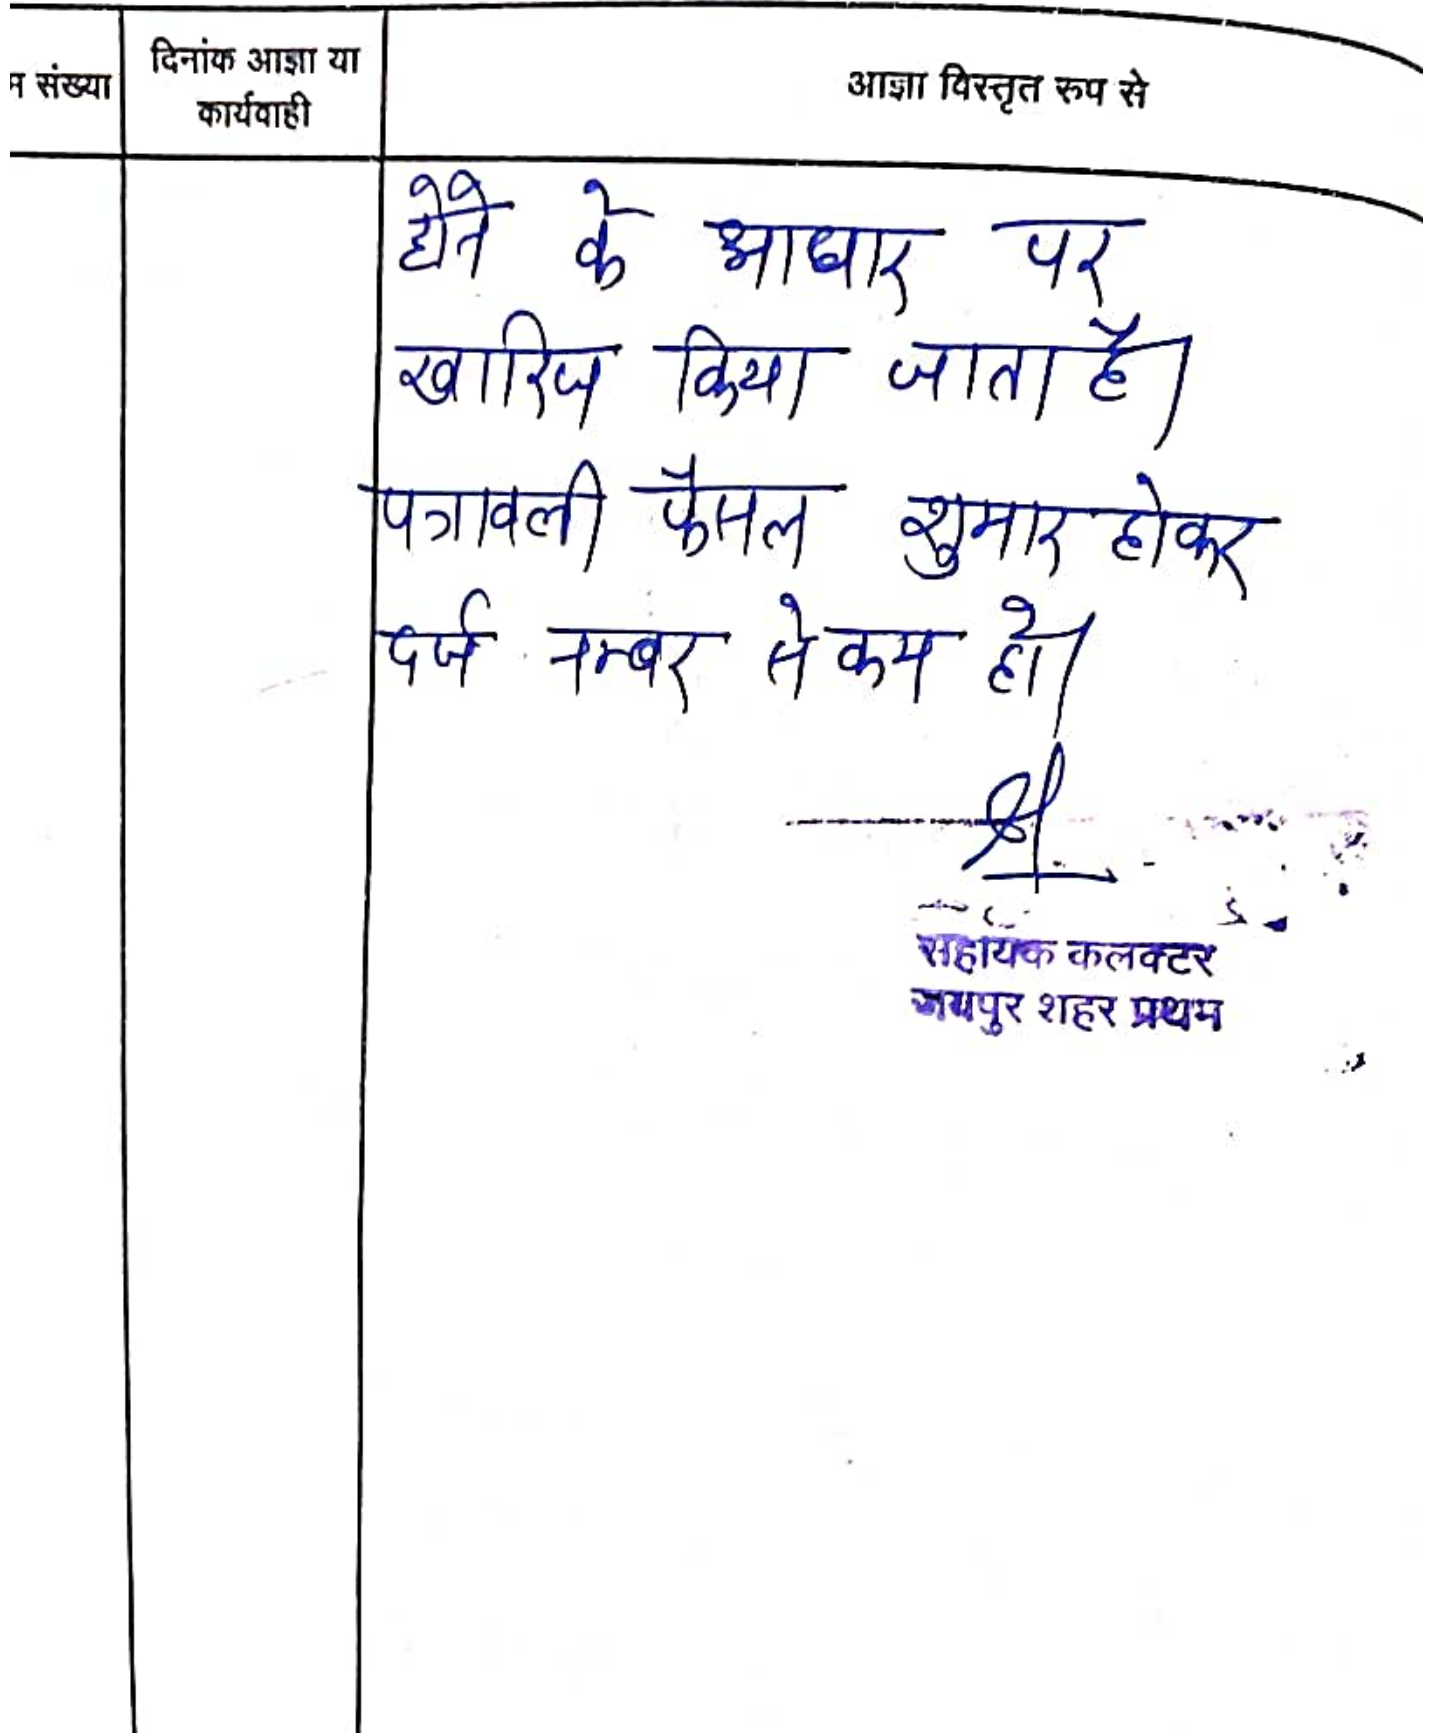 म संख्या
दिनांक आज्ञा या
कार्यवाही
आज्ञा विस्तृत रुप से
होने के आधार पर
खारिज किया जाता है।
पत्रावली फैसल शुमार होकर
दर्ज नम्बर से कम हो।
सहायक कलक्टर
जयपुर शहर प्रथम